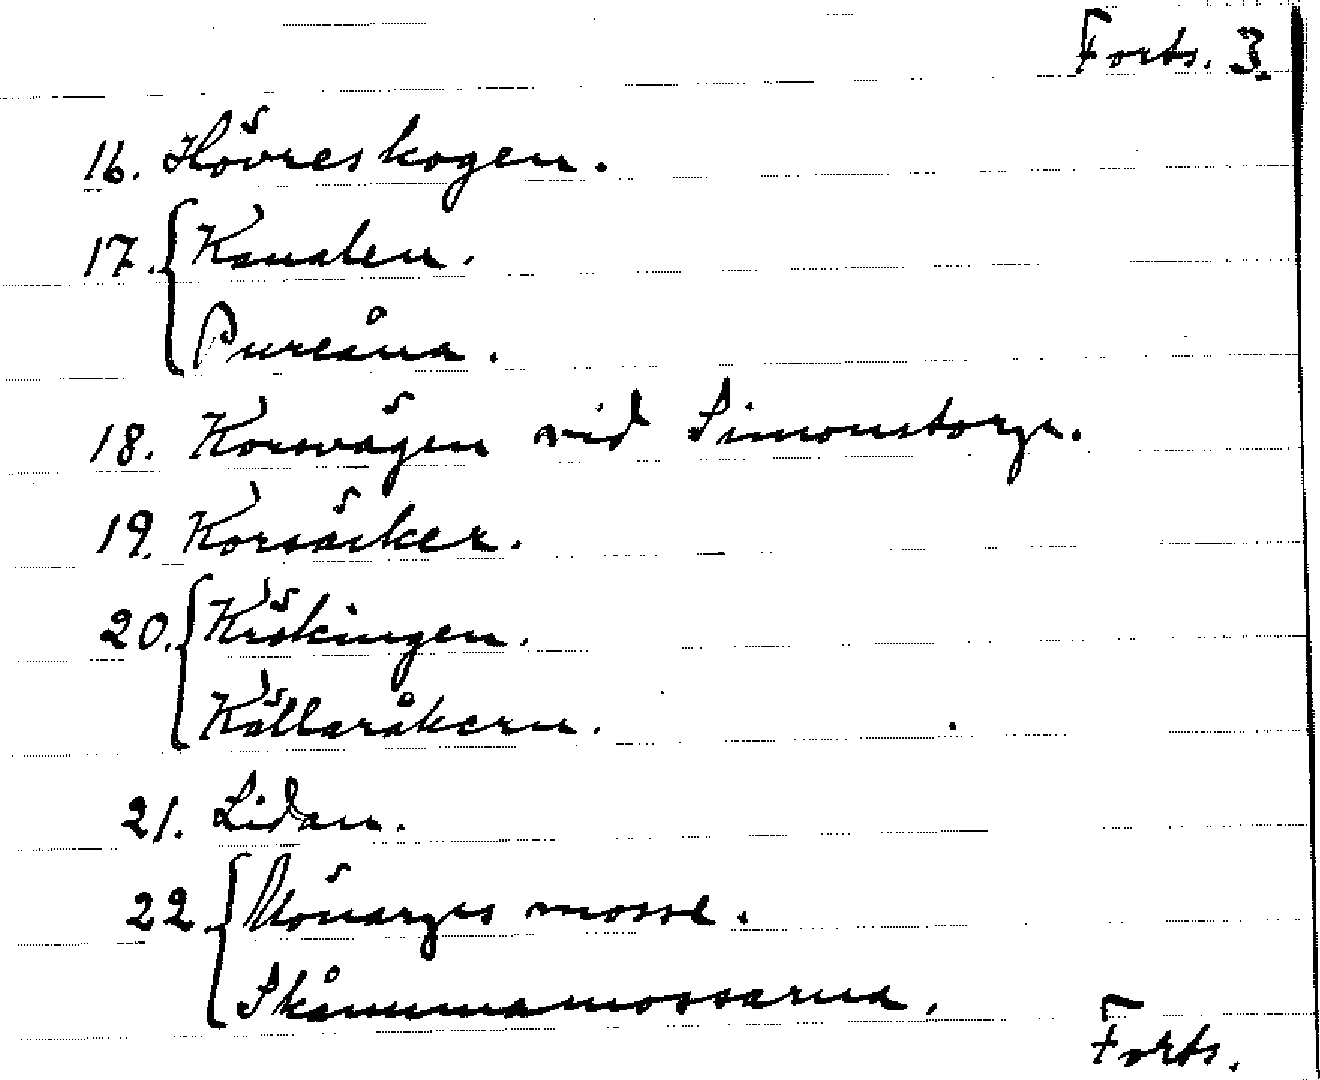 Forts. 3.
16. Hövreskogen.
17. Kanalen.
Pureåna.
18. Korsvägen vid Simonstorp.
19. Korsäcker.
20. Krökingen.
Källaråkern.
21. Lidan.
22. mosse.
Skåmmamossarna.
Forts.